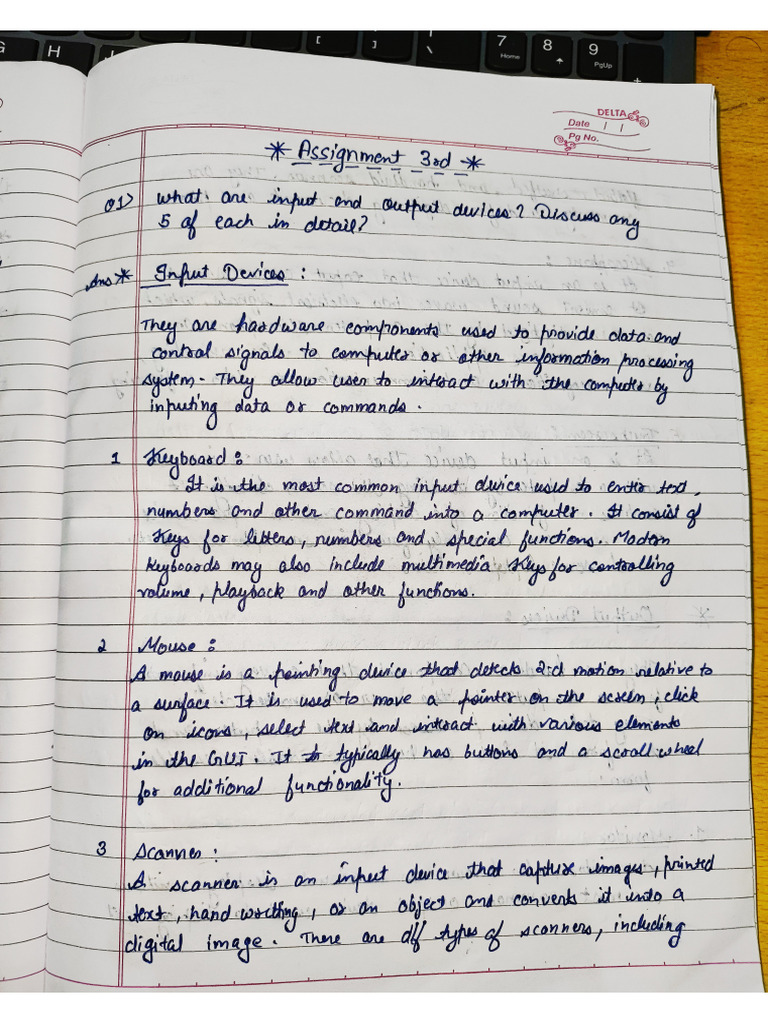 G H [ { ] } \ | 7 Home 8 9 PgUp
DELTA
Date / /
Pg No.
* Assignment 3rd *
Q1> What are input and output devices? Discuss any
5 of each in detail?
Ans * Input Devices :
They are hardware components used to provide data and
control signals to computer or other information processing
system. They allow user to interact with the computer by
inputing data or commands.
1 Keyboard :
It is the most common input device used to enter text,
numbers and other command into a computer. It consist of
Keys for letters, numbers and special functions. Modern
Keyboards may also include multimedia Keys for controlling
volume, playback and other functions.
2 Mouse :
A mouse is a pointing device that detects 2-d motion relative to
a surface. It is used to move a pointer on the screen, click
on icons, select text and interact with various elements
in the GUI. It typically has buttons and a scroll wheel
for additional functionality.
3 Scanner :
A scanner is an input device that capture images, printed
text, hand writing, or an object and converts it into a
digital image. There are diff types of scanners, including